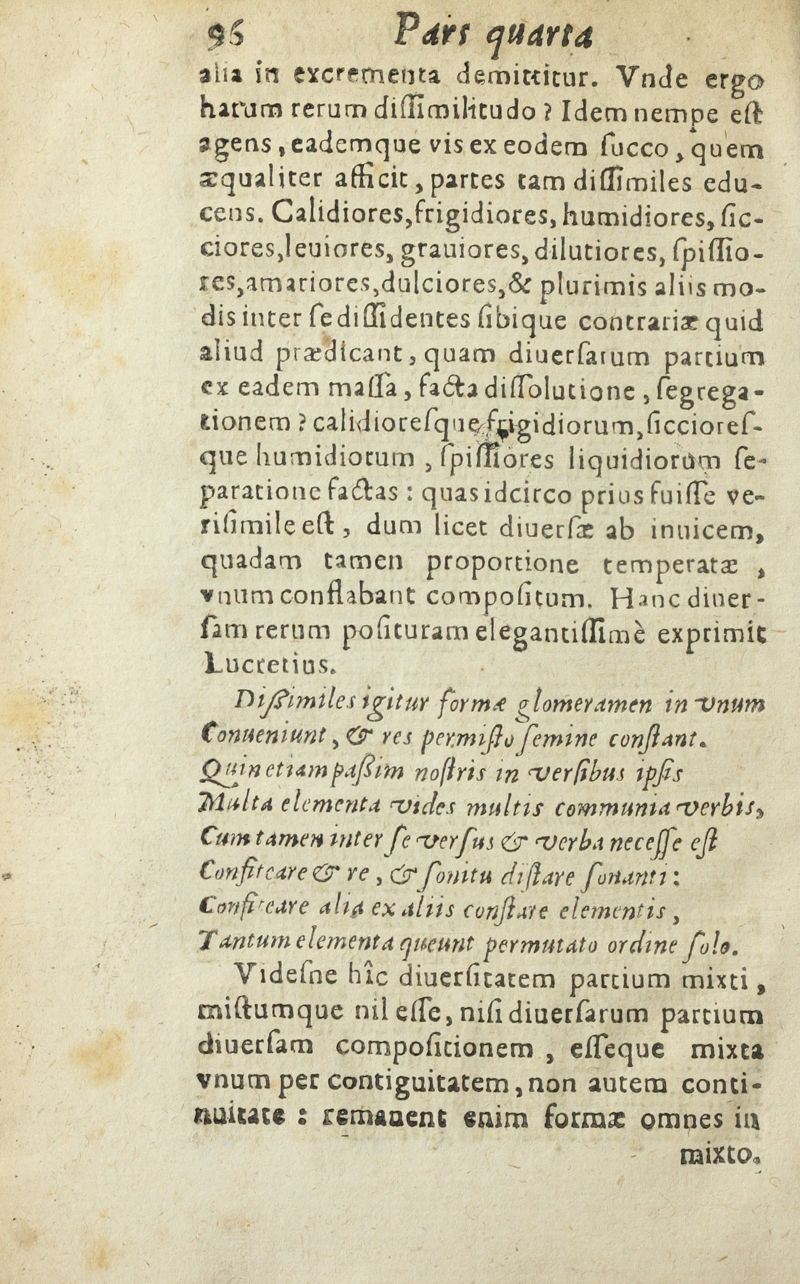 96 Pars quarta
alia in excrementa demittitur. Vnde ergo
harum rerum diſſimilitudo ? Idem nempe eſt
agens, eademque vis ex eodem ſucco, quem
æqualiter afficit, partes tam diſſimiles edu-
cens. Calidiores, frigidiores, humidiores, ſic-
ciores, leuiores, grauiores, dilutiores, ſpiſſio-
res, amariores, dulciores, & plurimis aliis mo-
dis inter ſe diſſidentes ſibique contrariæ quid
aliud prædicant, quam diuerſarum partium
ex eadem maſſa, facta diſſolutione, ſegrega-
tionem ? calidioreſque frigidiorum, ſiccioreſ-
que humidiorum, ſpiſſiores liquidiorum ſe-
paratione factas : quas idcirco prius fuiſſe ve-
riſimile eſt, dum licet diuerſæ ab inuicem,
quadam tamen proportione temperatæ ,
vnum conflabant compoſitum. Hanc diuer-
ſam rerum poſituram elegantiſſimè exprimit
Lucretius.
Diſsimiles igitur formæ glomeramen in vnum
Conueniunt, & res permiſto ſemine conſtant.
Quin etiam paſsim noſtris in verſibus ipſis
Multa elementa vides multis communia verbis,
Cum tamen inter ſe verſus & verba neceſſe eſt
Confiteare & re, & ſonitu diſtare ſonanti :
Confiteare alia ex aliis conſtare elementis,
Tantum elementa queunt permutato ordine ſolo.
Videſne hîc diuerſitatem partium mixti,
miſtumque nil eſſe, niſi diuerſarum partium
diuerſam compoſitionem , eſſeque mixta
vnum per contiguitatem, non autem conti-
nuitate : remanent enim formæ omnes in
mixto.